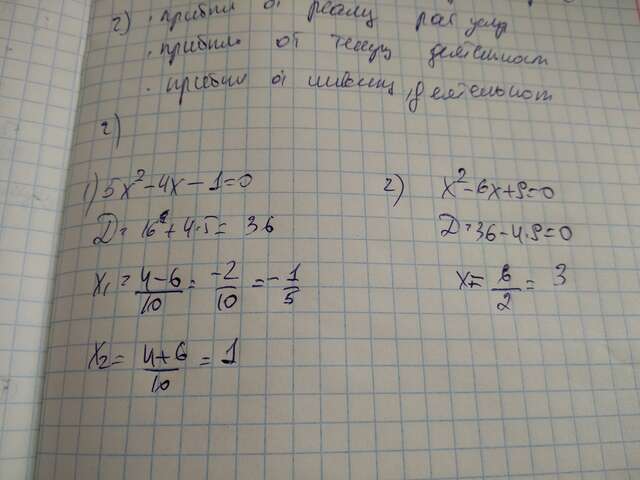 2) · прибыл от реалу раб услр
· прибыль от текущ деятельност
· прибыл от инвесиц деятельност
2)
1) 5x²-4x-1=0
D=16+4·5=36
x₁=4-6/10=-2/10=-1/5
x₂=4+6/10=1
2) x²-6x+9=0
D=36-4·9=0
x=6/2=3